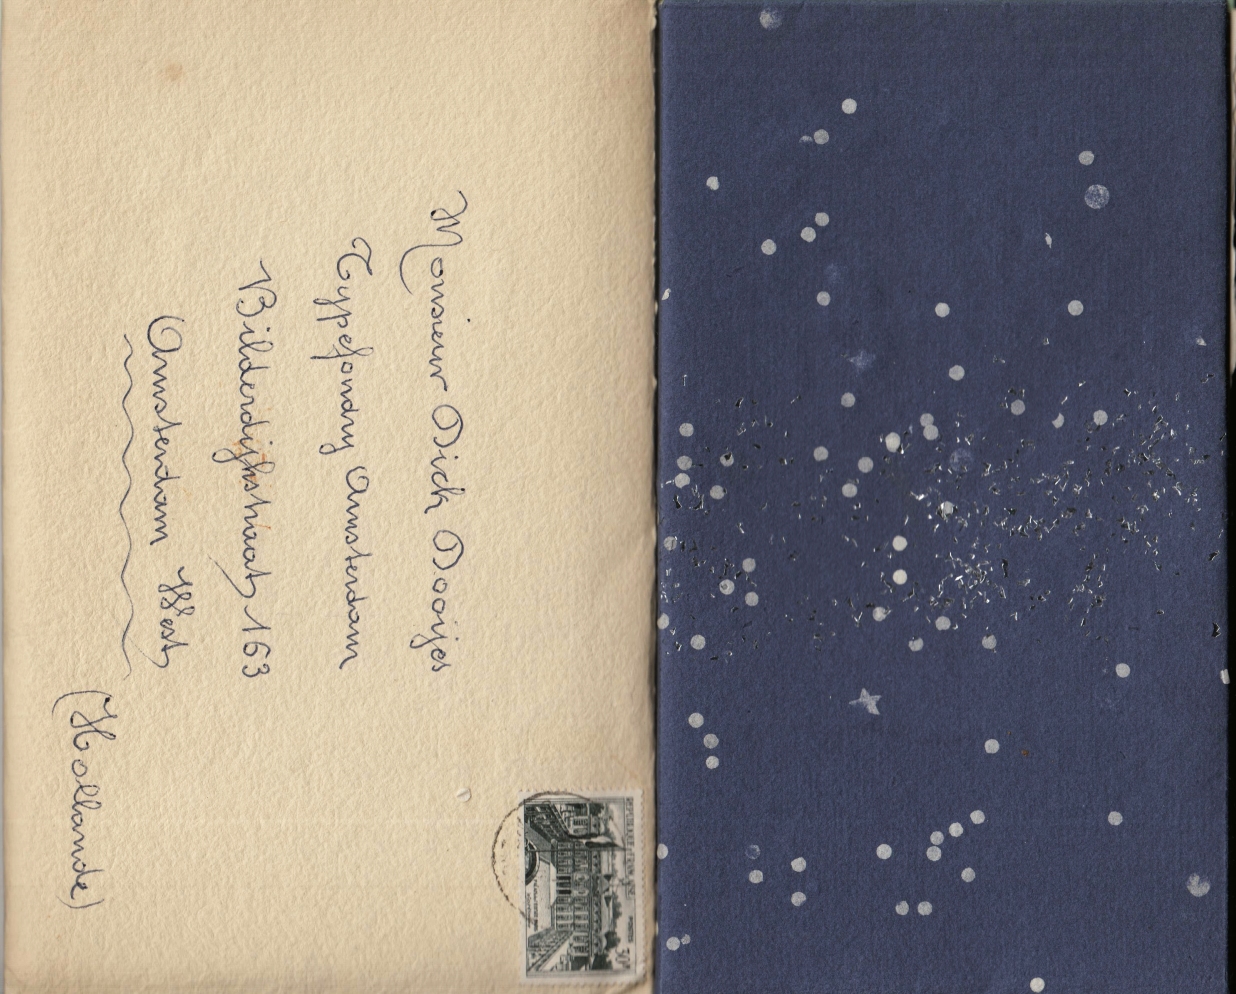 Monsieur Dick Dooijes
Typefondry Amsterdam
Bilderdijkstraat 163
Amsterdam West
(Hollande)
REPUBLIQUE FRANÇAISE
POSTES
30F